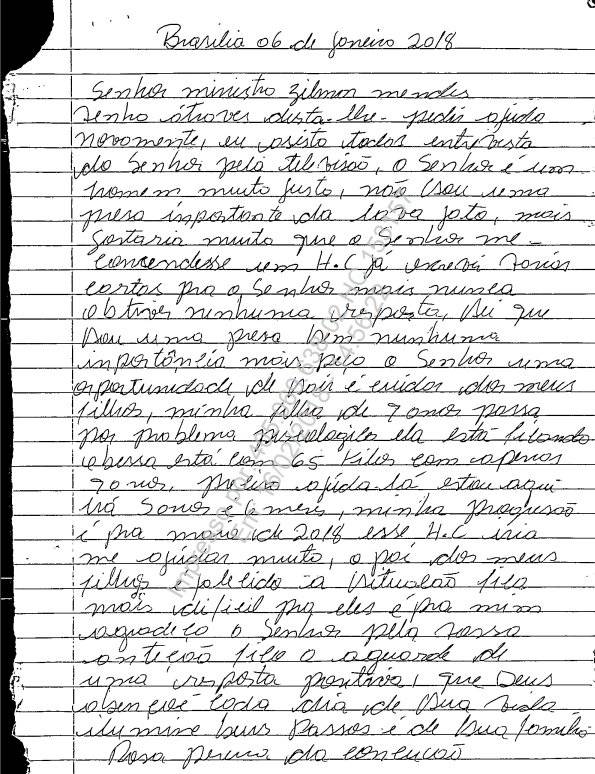 Brasilia 06 de Janeiro 2018
Senhor ministro Zilmar mendes
Venho átraves desta-lhe- pedir ajuda
novamente, eu asisto todas entrevista
do Senhor pela televisão, o Senhor é um
homem muito justo, não sou uma
presa importante da lava jato, mais
gostaria muito que o Senhor me-
concendesse um H.C já escrevi varias
cartas pra o Senhor mais nunca
obtive ninhuma resposta, Sei que
sou uma presa sem ninhuma
importância mais peço o Senhor uma
oportunidade de sair é cuidar dos meus
filhos, minha filha de 9 anos passa
por problema psicologico ela está ficando
obessa está com 65 Kilos com apenas
9 anos, preciso ajuda-lá estou aqui
irá 5 anos é 6 meses, minha progresão
é pra maio de 2018 esse H.C iria
me ajudar muito, o pai dos meus
filhos falecido a situacão fica
mais dificil pra eles é pra mim
agradeço o Senhor pela vossa
antecão fico a aguarde de
uma resposta positiva, que Deus
abençoê cada dia de sua vida
ilumine seus passos é de sua familia
Rosa da conceicão